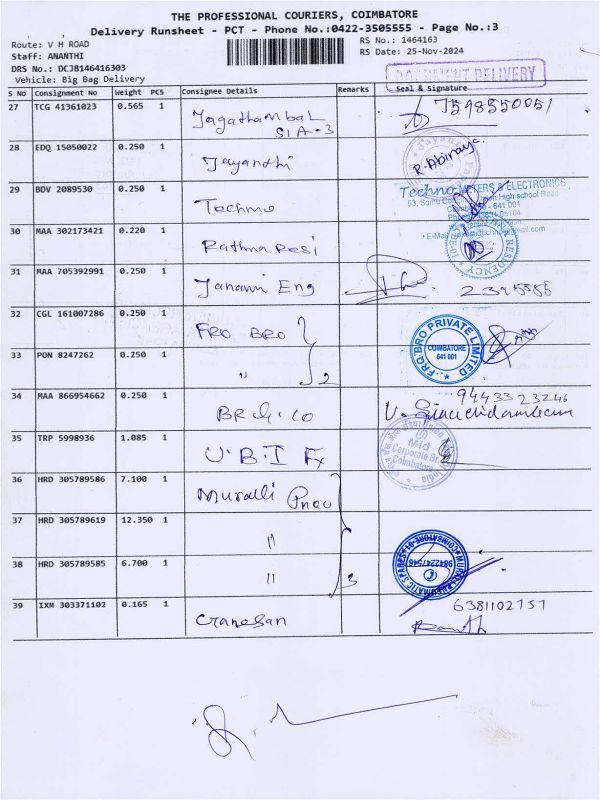 THE PROFESSIONAL COURIERS, COIMBATORE
Delivery Runsheet - PCT - Phone No.:0422-3505555 - Page No.:3
Route: V H ROAD
RS No.: 1464163
Staff: ANANTHI
RS Date: 25-Nov-2024
DRS No.: DCJB146416303
Vehicle: Big Bag Delivery
DOCUMENT DELIVERY
S No Consignment No Weight PCS Consignee Details Remarks Seal & Signature
27 TCG 41361023 0.565 1 Jagathambal
SIA-3
28 EDQ 15050022 0.250 1 Jayandhi R. Abiraya
29 BDV 2089530 0.250 1 Techno
Techno METERS & ELECTRONICS
641 001
30 MAA 302173421 0.220 1
31 MAA 705392991 0.250 1 Janani Eng
32 CGL 161007286 0.250 1 FRO BRO
FRQ BRO PRIVATE LIMITED
COIMBATORE
641 001
33 PON 8247262 0.250 1 " 2
34 MAA 866954662 0.250 1 9443323246
35 TRP 5998936 1.085 1 U.B.I Fx
Mid Corporate Br.
Coimbatore
36 HRD 305789586 7.100 1 Muralli Pneu
37 HRD 305789619 12.350 1 "
38 HRD 305789585 6.700 1 " 3
39 IXM 303371102 0.165 1 Cranesan